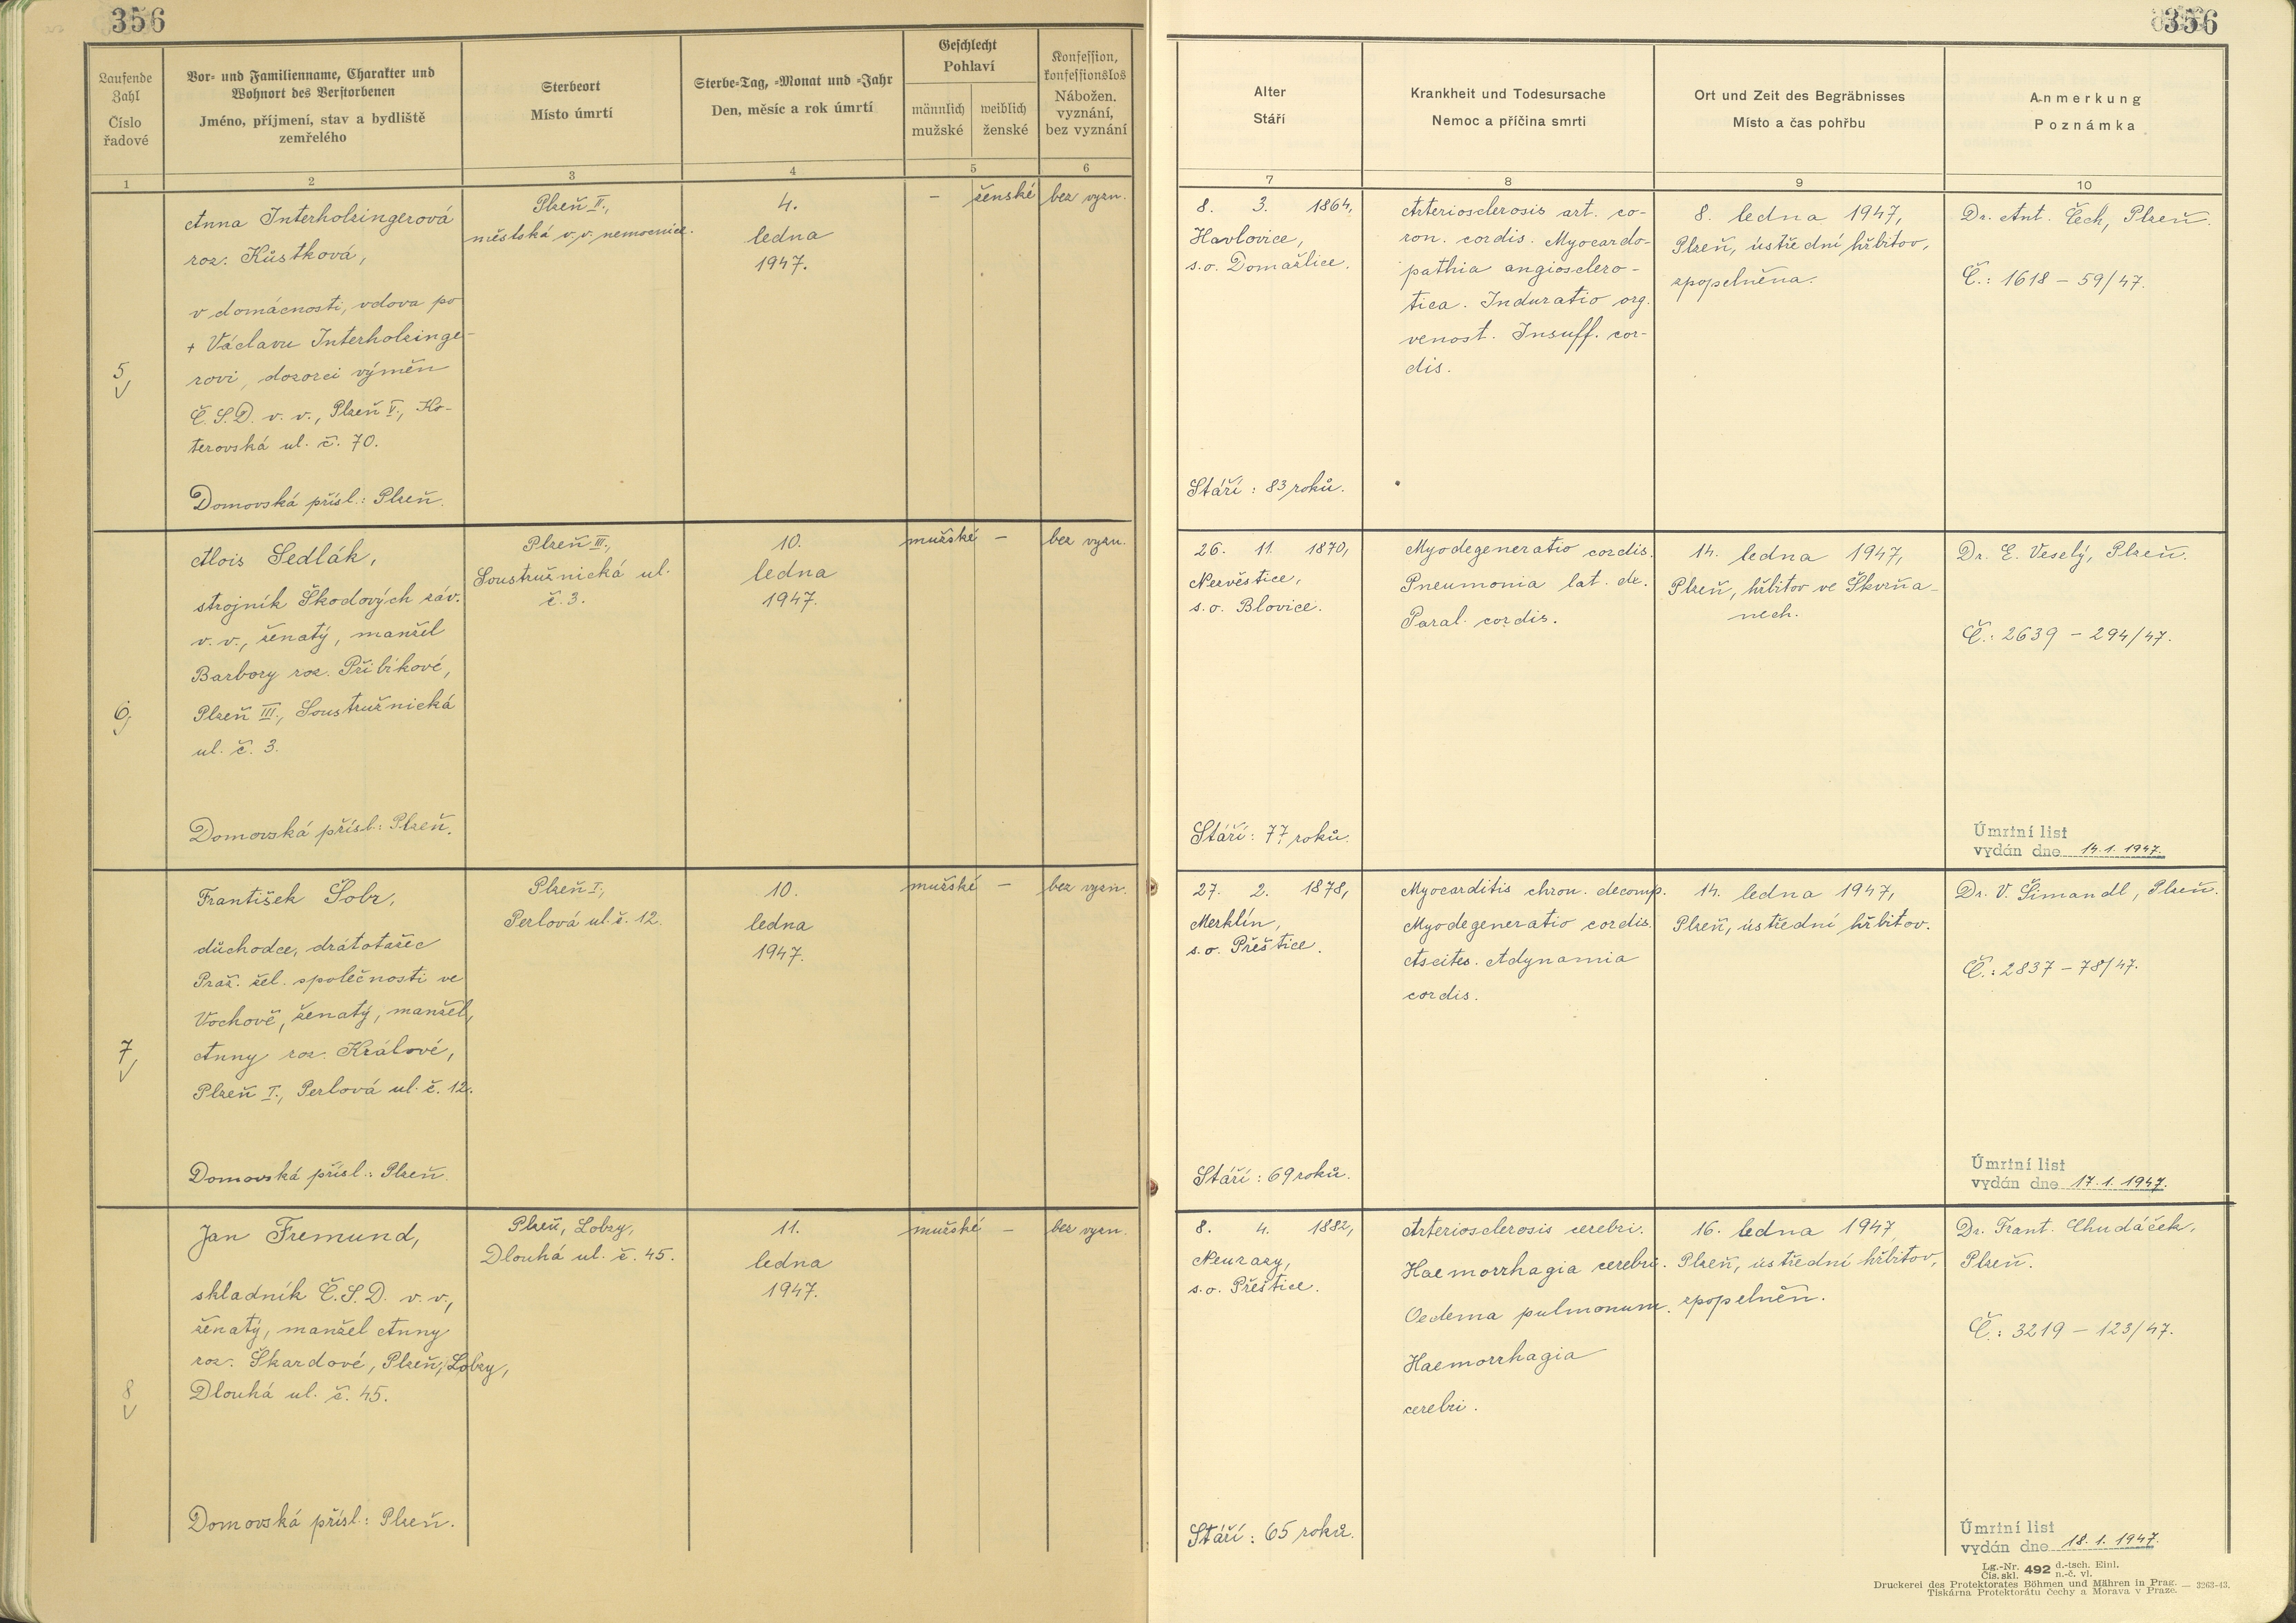 356
356
Laufende Zahl
Číslo řadové
Vor- und Familienname, Charakter und
Wohnort des Verstorbenen
Jméno, příjmení, stav a bydliště
zemřelého
Sterbeort
Místo úmrtí
Sterbe-Tag, -Monat und -Jahr
Den, měsíc a rok úmrtí
Geschlecht
Pohlaví
männlich
mužské
weiblich
ženské
Konfession,
konfessionslos
Nábožen.
vyznání,
bez vyznání
Alter
Stáří
Krankheit und Todesursache
Nemoc a příčina smrti
Ort und Zeit des Begräbnisses
Místo a čas pohřbu
Anmerkung
Poznámka
1 2 3 4 5 6 7 8 9 10
5,
Anna Interholzingerová
roz. Kůstková,
v domácnosti, vdova po
+ Václavu Interholzinge-
rovi, dozorci výměn
Č.S.D. v. v., Plzeň V., Ko-
terovská ul. č. 70.
Domovská přísl.: Plzeň.
Plzeň II.,
městská v.v. nemocnice.
4.
ledna
1947.
–
ženské
bez vyzn.
8. 3. 1864,
Havlovice,
s.o. Domažlice.
Stáří: 83 roků.
Arteriosclerosis art. co-
ron. cordis. Myocardo-
pathia angiosclero-
tica. Induratio org.
venost. Insuff. cor-
dis.
8. ledna 1947,
Plzeň, ústřední hřbitov,
zpopelněna.
Dr. Ant. Čech, Plzeň.
Č.: 1618 – 59/47.
6,
Alois Sedlák,
strojník Škodových záv.
v. v., ženatý, manžel
Barbory roz. Přibíkové,
Plzeň III., Soustružnická
ul. č. 3.
Domovská přísl.: Plzeň.
Plzeň III.,
Soustružnická ul.
č. 3.
10.
ledna
1947.
mužské
–
bez vyzn.
26. 11. 1870,
Nezvěstice,
s.o. Blovice.
Stáří: 77 roků.
Myodegeneratio cordis.
Pneumonia lat. dx.
Paral. cordis.
14. ledna 1947,
Plzeň, hřbitov ve Skvrňa-
nech.
Dr. E. Veselý, Plzeň.
Č.: 2639 – 294/47.
Úmrtní list
vydán dne 14.1.1947.
7,
František Šobr,
důchodce, drátotažec
Praž. žel. společnosti ve
Vochově, ženatý, manžel,
Anny roz. Králové,
Plzeň I., Perlová ul. č. 12.
Domovská přísl.: Plzeň
Plzeň I.,
Perlová ul. č. 12.
10.
ledna
1947.
mužské
–
bez vyzn.
27. 2. 1878,
Merklín,
s.o. Přeštice.
Stáří: 69 roků.
Myocarditis chron. decomp.
Myodegeneratio cordis.
Ascites. Adynamia
cordis.
14. ledna 1947,
Plzeň, ústřední hřbitov.
Dr. V. Šimandl, Plzeň.
Č.: 2837 – 78/47.
Úmrtní list
vydán dne 17.1.1947.
8
Jan Fremund,
skladník Č.S.D. v. v.,
ženatý, manžel Anny
roz. Škardové, Plzeň, Lobzy,
Dlouhá ul. č. 45.
Domovská přísl.: Plzeň.
Plzeň, Lobzy,
Dlouhá ul. č. 45.
11.
ledna
1947.
mužské
–
bez vyzn.
8. 4. 1882,
Neurazy,
s.o. Přeštice.
Stáří: 65 roků.
Arteriosclerosis cerebri.
Haemorrhagia cerebri.
Oedema pulmonum.
Haemorrhagia
cerebri.
16. ledna 1947,
Plzeň, ústřední hřbitov,
zpopelněn.
Dr. Frant. Chudáček,
Plzeň.
Č.: 3219 – 123/47.
Úmrtní list
vydán dne 18.1.1947.
Lg.-Nr. 492 d.-tsch. Einl.
Čís. skl. n.-č. vl.
Druckerei des Protektorates Böhmen und Mähren in Prag. — 3263-43.
Tiskárna Protektorátu Čechy a Morava v Praze.